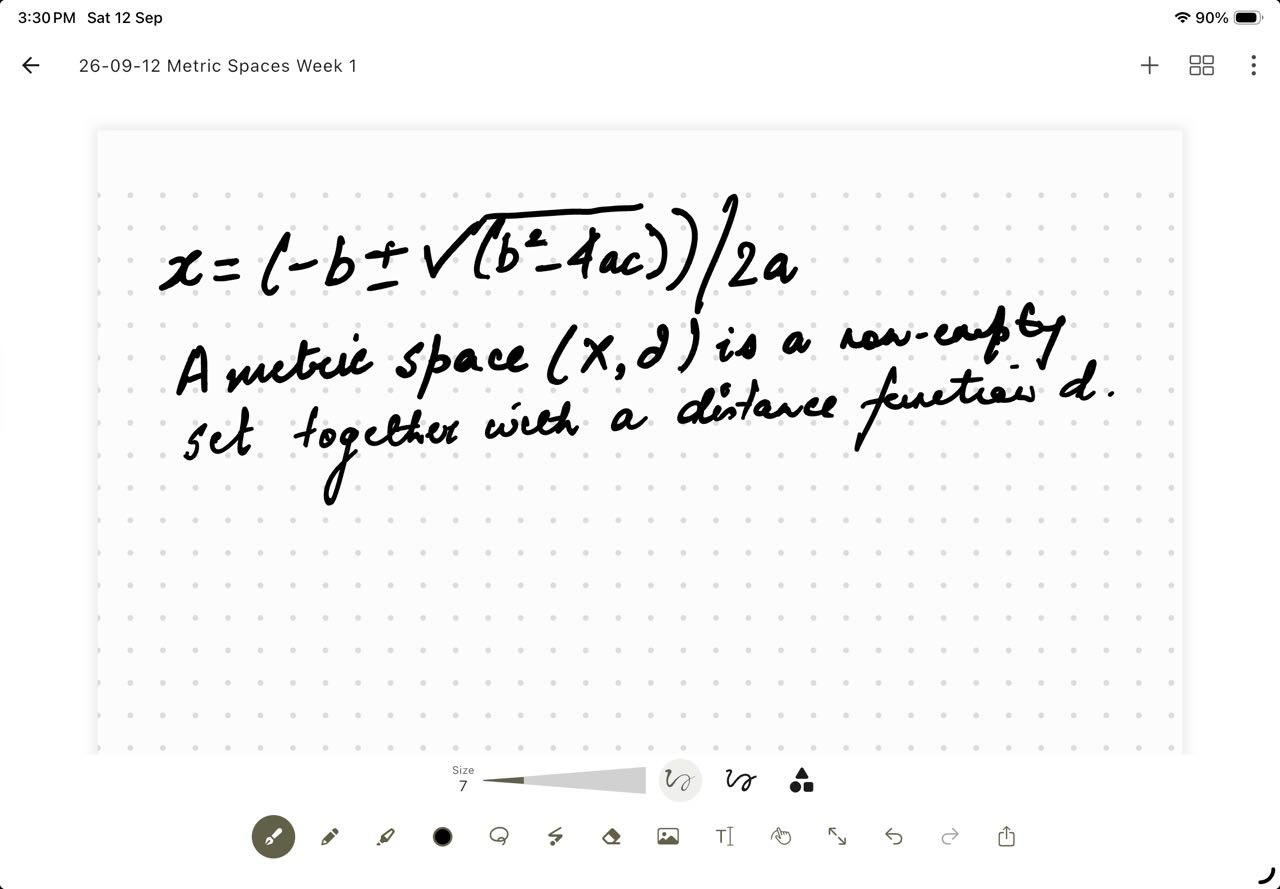 3:30 PM Sat 12 Sep
90%
26-09-12 Metric Spaces Week 1
x = (-b ± √(b² - 4ac))/2a
A metric space (X, d) is a non-empty
set together with a distance function d.
Size
7